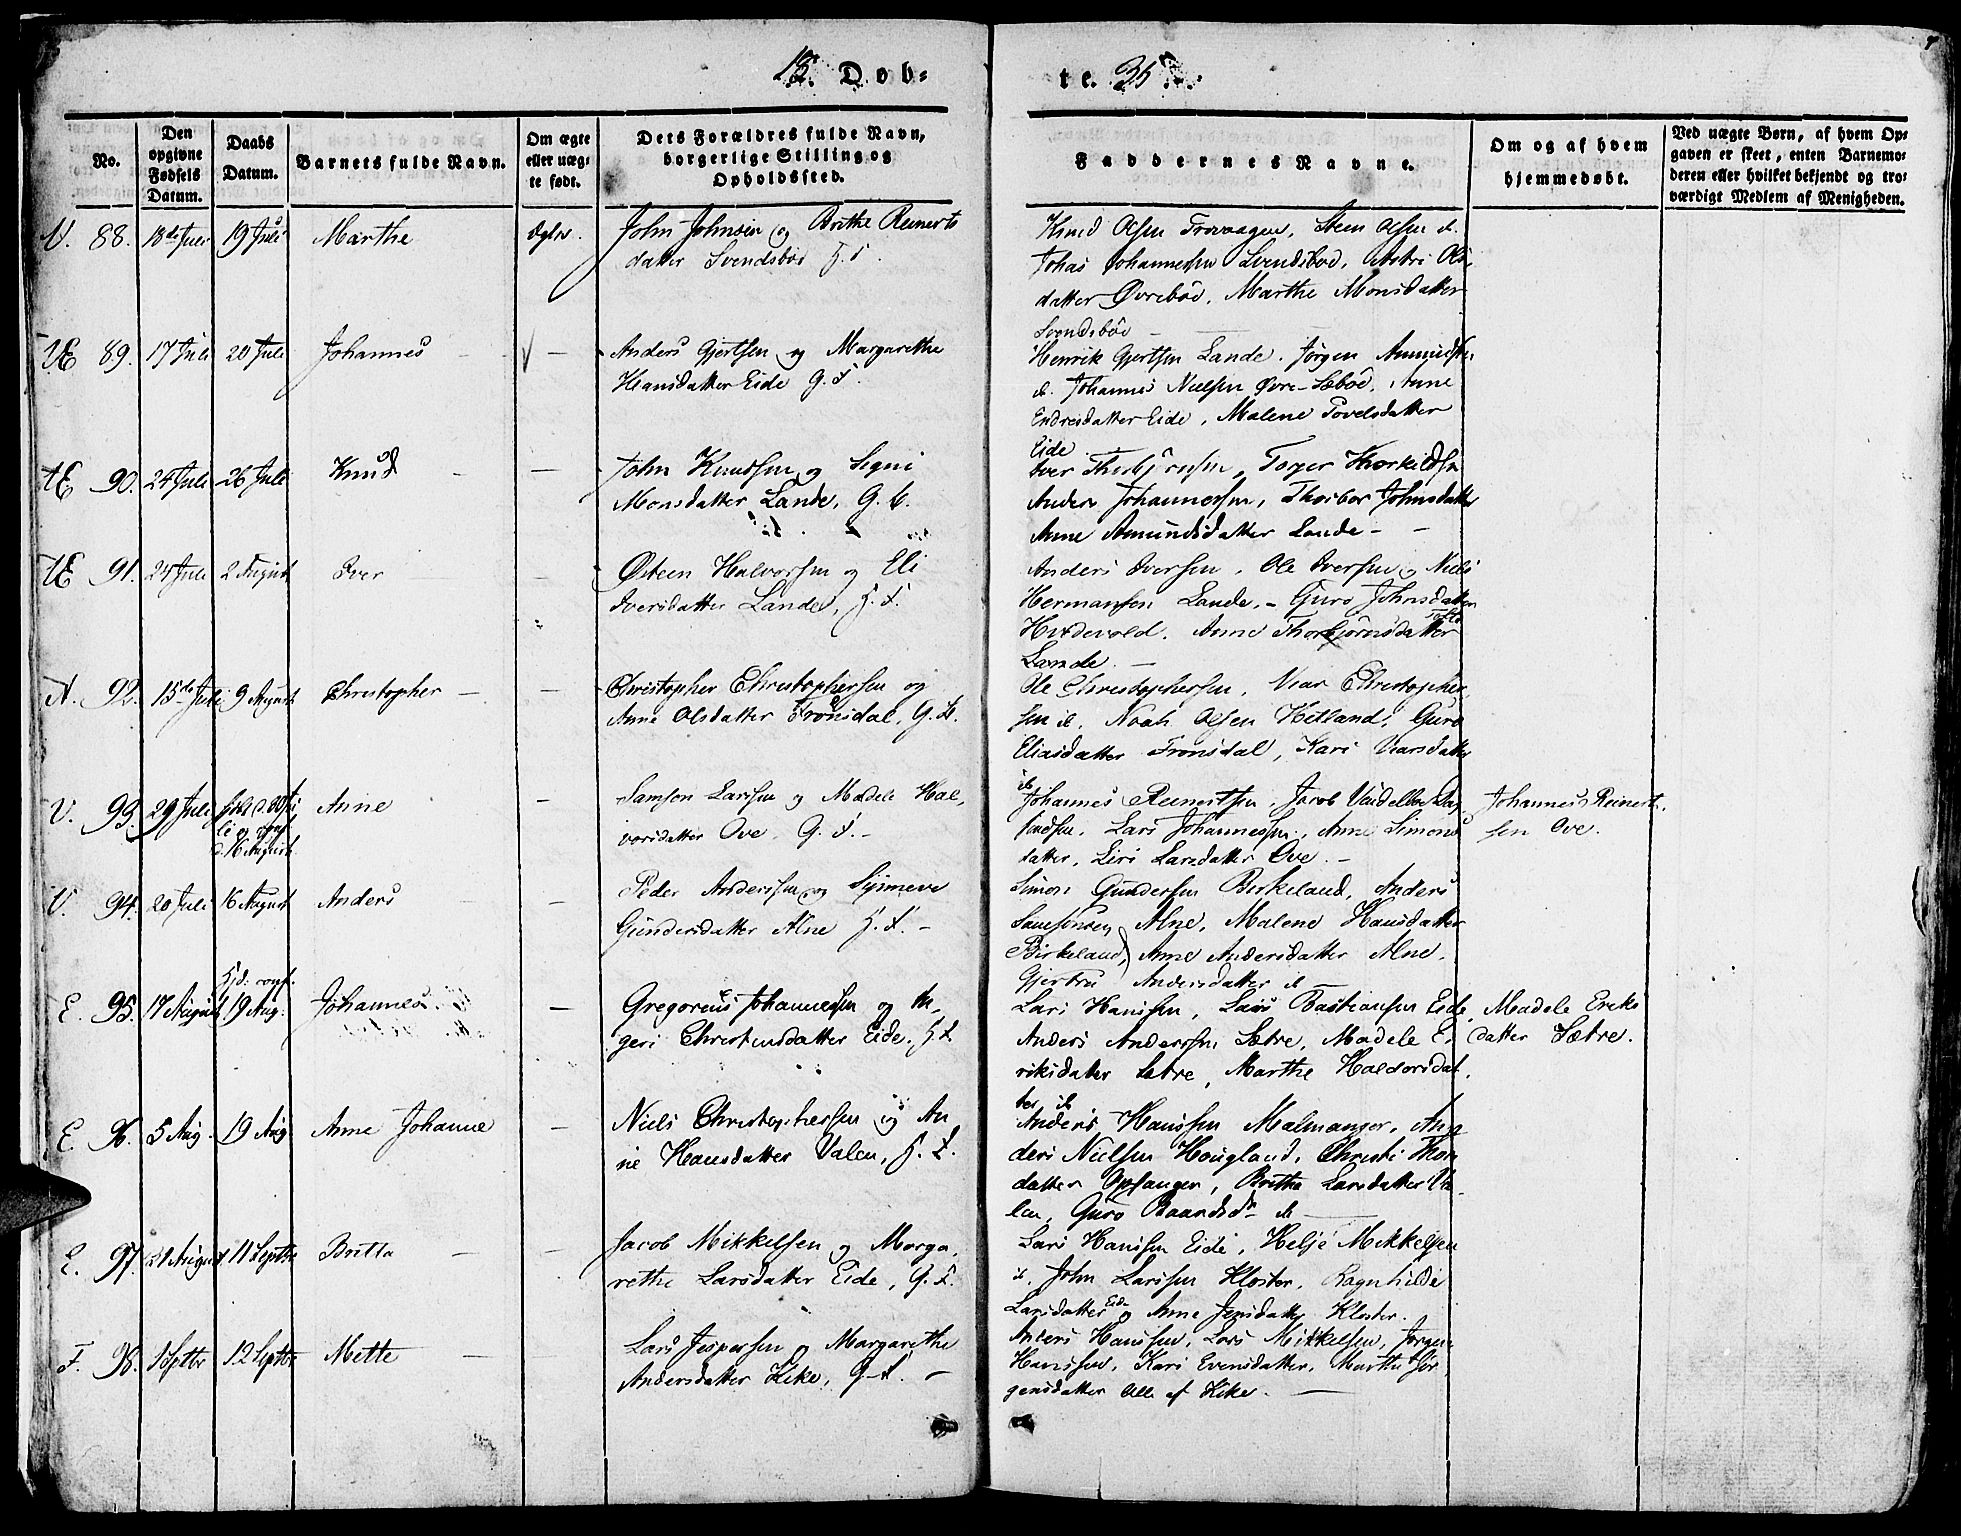 18. Dob-
te. 35 
No.
Den
opgivne
Fødsels
Datum.
Daabs
Datum.
Barnets fulde Navn.
Om ægte
eller uæg-
te født.
Dets Forældres fulde Navn,
borgerlige Stilling og
Opholdssted.
Faddernes Navne.
Om og af hvem
hjemmedøbt.
Ved uægte Børn, af hvem Op-
gaven er skeet, enten Barnemo-
deren eller hvilket bekjendt og tro-
værdigt Medlem af Menigheden.
V. 88. 18de Juli 19 Juli Marthe
John Johnsen og Brithe Reinerts
datter Svendsbøe
Knud Olsen Trovaagen, Steen Olsen d.
Johannesen Svendsbøe, Astri Ols
datter Øvrebøe, Marthe Monsdatter
Svendsbøe
VE 89. 17 Juli 20 Juli Johannes —
Anders Gjertsen og Margarethe
Hansdatter Eide G. F.
Henrik Gjertsen Lande, Jørgen
d. Johannes Nielsen Øvre-Sæbøe, Anne
Endresdatter Eide, Malene Povelsdatter
Eide
VE 90. 24 Juli 26 Juli Knud —
John Knudsen og Segni
Monsdatter Lande, G.
Iver Thorbjørnsen, Torger Thorkildsen
Anders Johannessen, Thorbor Johnsdatter
Anne Amundsdatter Lande —
VE 91. 24 Juli 2 August Iver —
Østeen Halvorsen og Eli
Iversdatter Lande, F.
Anders Iversen, Ole Iversen og Niels
Hermansen Lande. — Guro Johnsdatter
Hvidevold. Anne Thorbjørnsdatter
Lande —
A. 92. 15de Juli 9 August Christopher —
Christopher Christophersen og
Anne Olsdatter Frønsdal, G.
Ole Christophersen, Vear Christopher
sen d. Noah Olsen Hetland, Guro
Eliasdatter Frønsdal, Kari Vearsdatter
d.
V. 93. 29 Juli
d. 16 August Anne
Samson Larssen og Madele Hal-
vorsdatter Ove, G. F. —
Johannes Reinertsen, Jacob Vendelboe
Lars Johannessen, Anne Simons
datter, Siri Larsdatter Ove. —
Johannes Reinert-
sen Ove.
V. 94. 20 Juli 16 August Anders
Peder Anderssen og Synneve
Gundersdatter Alne F. —
Simon Gundersen Birkeland, Anders
Samsonsen Alne, Malene Hansdatter
Birkeland, Anne Andersdatter Alne,
Gjertru Andersdatter d
E. 95. 17 August 19 Aug. Johannes
Gregorius Johannesen og In-
geri Christensdatter Eide,
Lars Hanssen, Lars Bastiansen Eide,
Anders Anderssen Sætre, Madele E-
riksdatter Sætre, Marthe Haldorsdat-
ter d
Madele Eriks
datter Sætre.
E. 96. 5 Aug. 19 Aug Anne Johanne
Niels Christophersen og An
ne Hansdatter Valen, F.
Anders Hanssen Malmanger, An
ders Nielsen Hougland, Christi Thor
datter Opsanger, Brithe Larsdatter Va-
len, Guro Baardsdr d
E. 97. 21 August 11 Septbr Britta —
Jacob Mikkelsen og Marga-
rethe Larsdatter Eide, G. F.
Lars Hanssen Eide, Helje Mikkelsen
d. John Larssen Kloster, Ragnhilde
Larsdatter Eide og Anne Jensdatter Kloster.
F. 98. 1 Septbr 12 Septbr Mette —
Lars Jespersen og Margarethe
Andersdatter Kike, G. F. —
Anders Hanssen, Lars Mikkelsen, Jørgen
Hanssen, Kari Evensdatter, Marthe Jør-
gensdatter alle af Kike. —